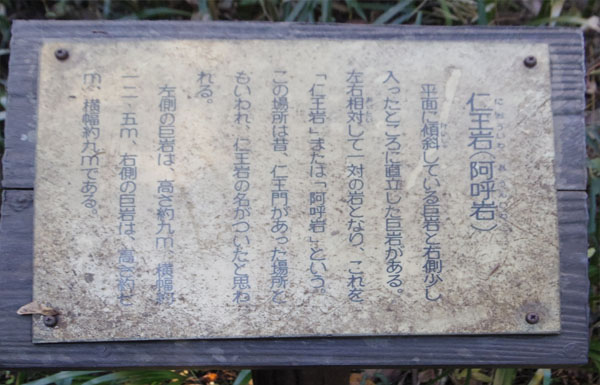 仁王岩(阿呼岩)
平面に傾斜している巨岩と右側少し
入ったところに直立した巨岩がある。
左右相対して一対の岩となり、これを
「仁王岩」または「阿呼岩」という。
この場所は昔、仁王門があった場所と
もいわれ、仁王岩の名がついたと思わ
れる。
左側の巨岩は、高さ約九m、横幅約
一二、五m、右側の巨岩は、高さ約七
m、横幅約九mである。